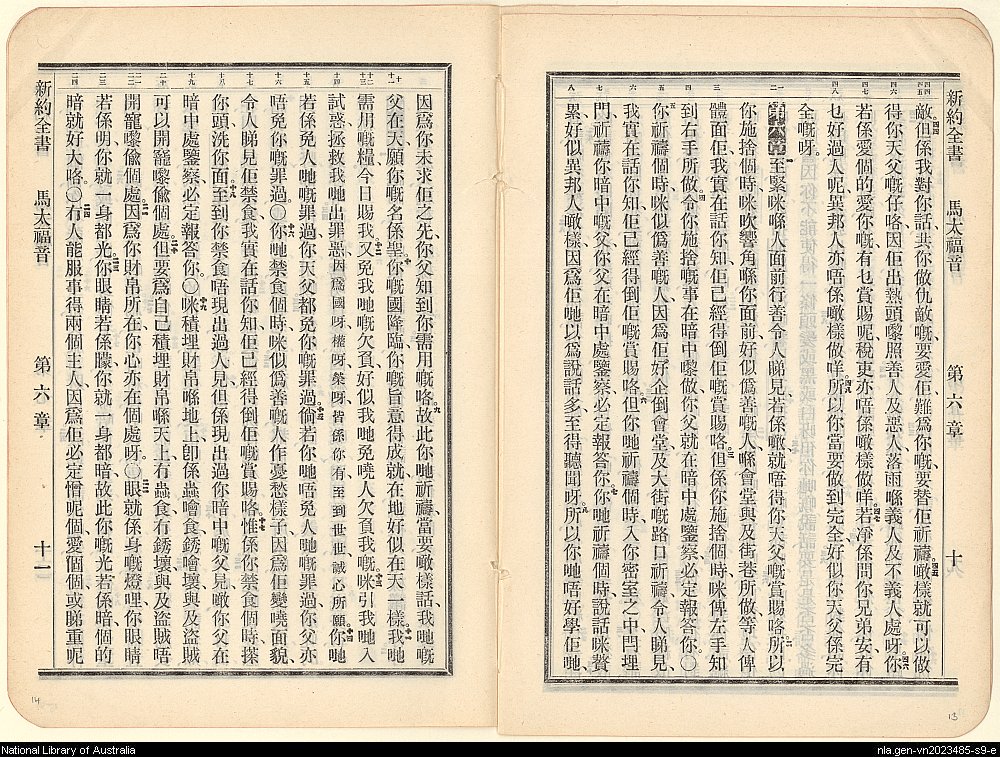 新約全書 馬太福音 第六章 十
四四 四五 四六 四七 四八 一二 三 四 五 六 七 八
敵、但係我對你話、共你做仇敵嘅、要愛佢、難爲你嘅、要替佢祈禱、噉樣就可以做
得你天父嘅仔咯、因佢出熱頭嚟照善人及惡人、落雨喺義人及不義人處呀、你
若係愛個的愛你嘅、有乜賞賜呢、稅吏亦唔係噉樣做咩、若淨係問你兄弟安、有
乜好過人呢、異邦人亦唔係噉樣做咩、所以你當要做到完全、好似你天父係完
全嘅呀。
第六章 至緊咪喺人面前行善、令人睇見、若係噉、就唔得你天父嘅賞賜咯、所以
你施捨個時、咪吹響角喺你面前、好似僞爲善嘅人、喺會堂與及街巷所做、等人俾
體面佢、我實在話你知、佢已經得倒佢嘅賞賜咯、但係你施捨個時、咪俾左手知
到右手所做、令你施捨嘅事在暗中嚟做、你父就在暗中處鑒察、必定報答你。〇
你祈禱個時、咪似僞爲善嘅人、因爲佢好企倒會堂及大街嘅路口祈禱、令人睇見、
我實在話你知、佢已經得倒佢嘅賞賜咯、但你哋祈禱個時、入你密室之中、閂埋
門、祈禱你暗中嘅父、你父在暗中處鑒察、必定報答你、你哋祈禱個時、說話咪贅
累、好似異邦人噉樣、因爲佢哋以爲說話多、至得聽聞呀、所以你哋唔好學佢哋、
13
因爲你未求佢之先、你父知到你需用嘅咯、故此你哋祈禱、當要噉樣話、我哋嘅
父在天、願你嘅名係聖、你嘅國降臨、你嘅旨意得成就在地、好似在天一樣、我哋
需用嘅糧、今日賜我、又免我哋嘅欠負、好似我哋免曉人欠負我哋嘅、咪引我哋入
試惑、拯救我哋出罪惡、因爲國呀、權呀、榮呀、皆係你有、至到世世、誠心所願、你哋
若係免人哋嘅罪過、你天父都免你嘅罪過、倘若你哋唔免人哋嘅罪過、你父亦
唔免你嘅罪過。〇你哋禁食個時、咪似僞爲善嘅人、作憂愁樣子、因爲佢變曉面貌、
令人睇見佢禁食、我實在話你知、佢已經得倒佢嘅賞賜咯、惟係你禁食個時、搽
你頭、洗你面、至到你禁食唔現出過人見、但係現出過你暗中嘅父見、噉你父在
暗中處鑒察、必定報答你。〇咪積埋財帛喺地上、卽係蟲噲食、銹噲壞、與及盜賊
可以開籠嚟偸個處、但要爲自己積埋財帛喺天上、冇蟲食、冇銹壞、與及盜賊唔
開籠嚟偸個處、因爲你財帛所在、你心亦在個處呀。〇眼就係身嘅燈哩、你眼睛
若係明、你就一身都光、你眼睛若係朦、你就一身都暗、故此你嘅光若係暗、個的
暗就好大咯。〇冇人能服事得兩個主人、因爲佢必定憎呢個、愛個個、或睇重呢
十 十一 十二 十三 十四 十五 十六 十七 十八 十九 二十 二一 二二 二三 二四
新約全書 馬太福音 第六章 十一
14
National Library of Australia
nla.gen-vn2023485-s9-e